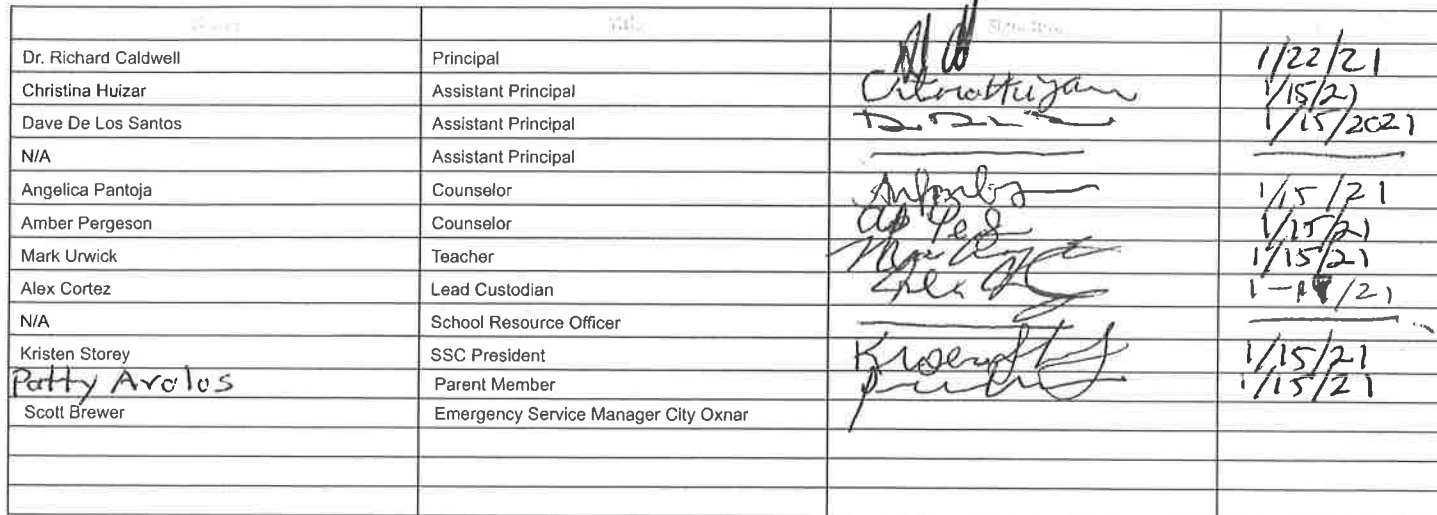 Name Title Signature
Dr. Richard Caldwell Principal 1/22/21
Christina Huizar Assistant Principal 1/15/21
Dave De Los Santos Assistant Principal 1/15/2021
N/A Assistant Principal
Angelica Pantoja Counselor 1/15/21
Amber Pergeson Counselor 1/15/21
Mark Urwick Teacher 1/15/21
Alex Cortez Lead Custodian
N/A School Resource Officer
Kristen Storey SSC President 1/15/21
Patty Avalos Parent Member 1/15/21
Scott Brewer Emergency Service Manager City Oxnar